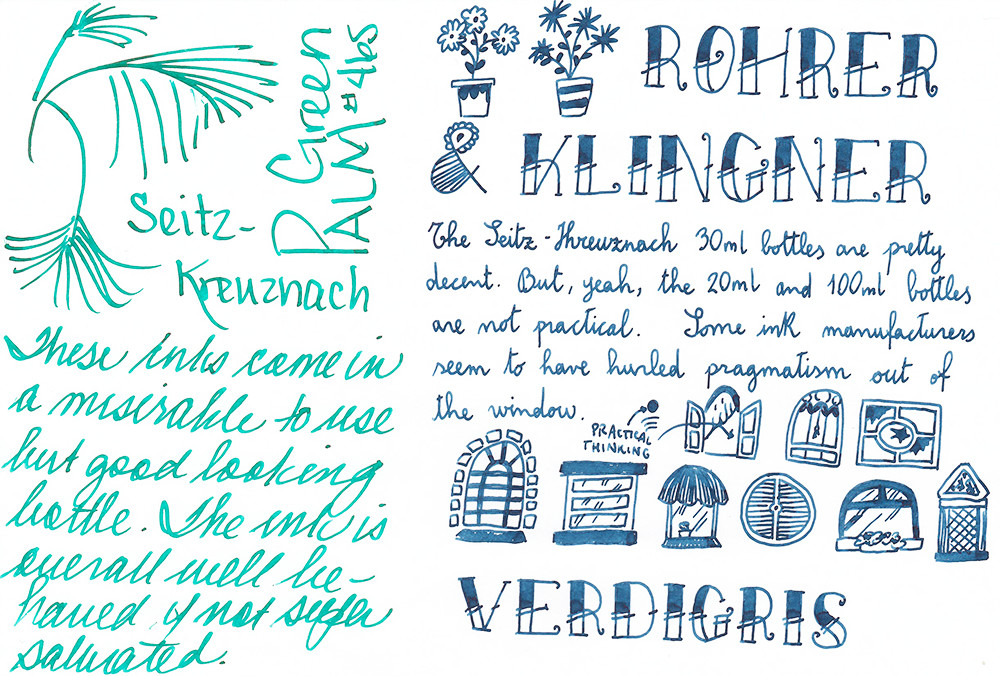 Seitz-
Kreuznach
Green
PALM #465
These inks came in
a miserable to use
but good looking
bottle. The ink is
overall well be-
haved, if not super
saturated.
ROHRER
& KLINGNER
The Seitz-Kreuznach 30ml bottles are pretty
decent. But, yeah, the 20ml and 100ml bottles
are not practical. Some ink manufacturers
seem to have hurled pragmatism out of
the window.
PRACTICAL
THINKING
VERDIGRIS